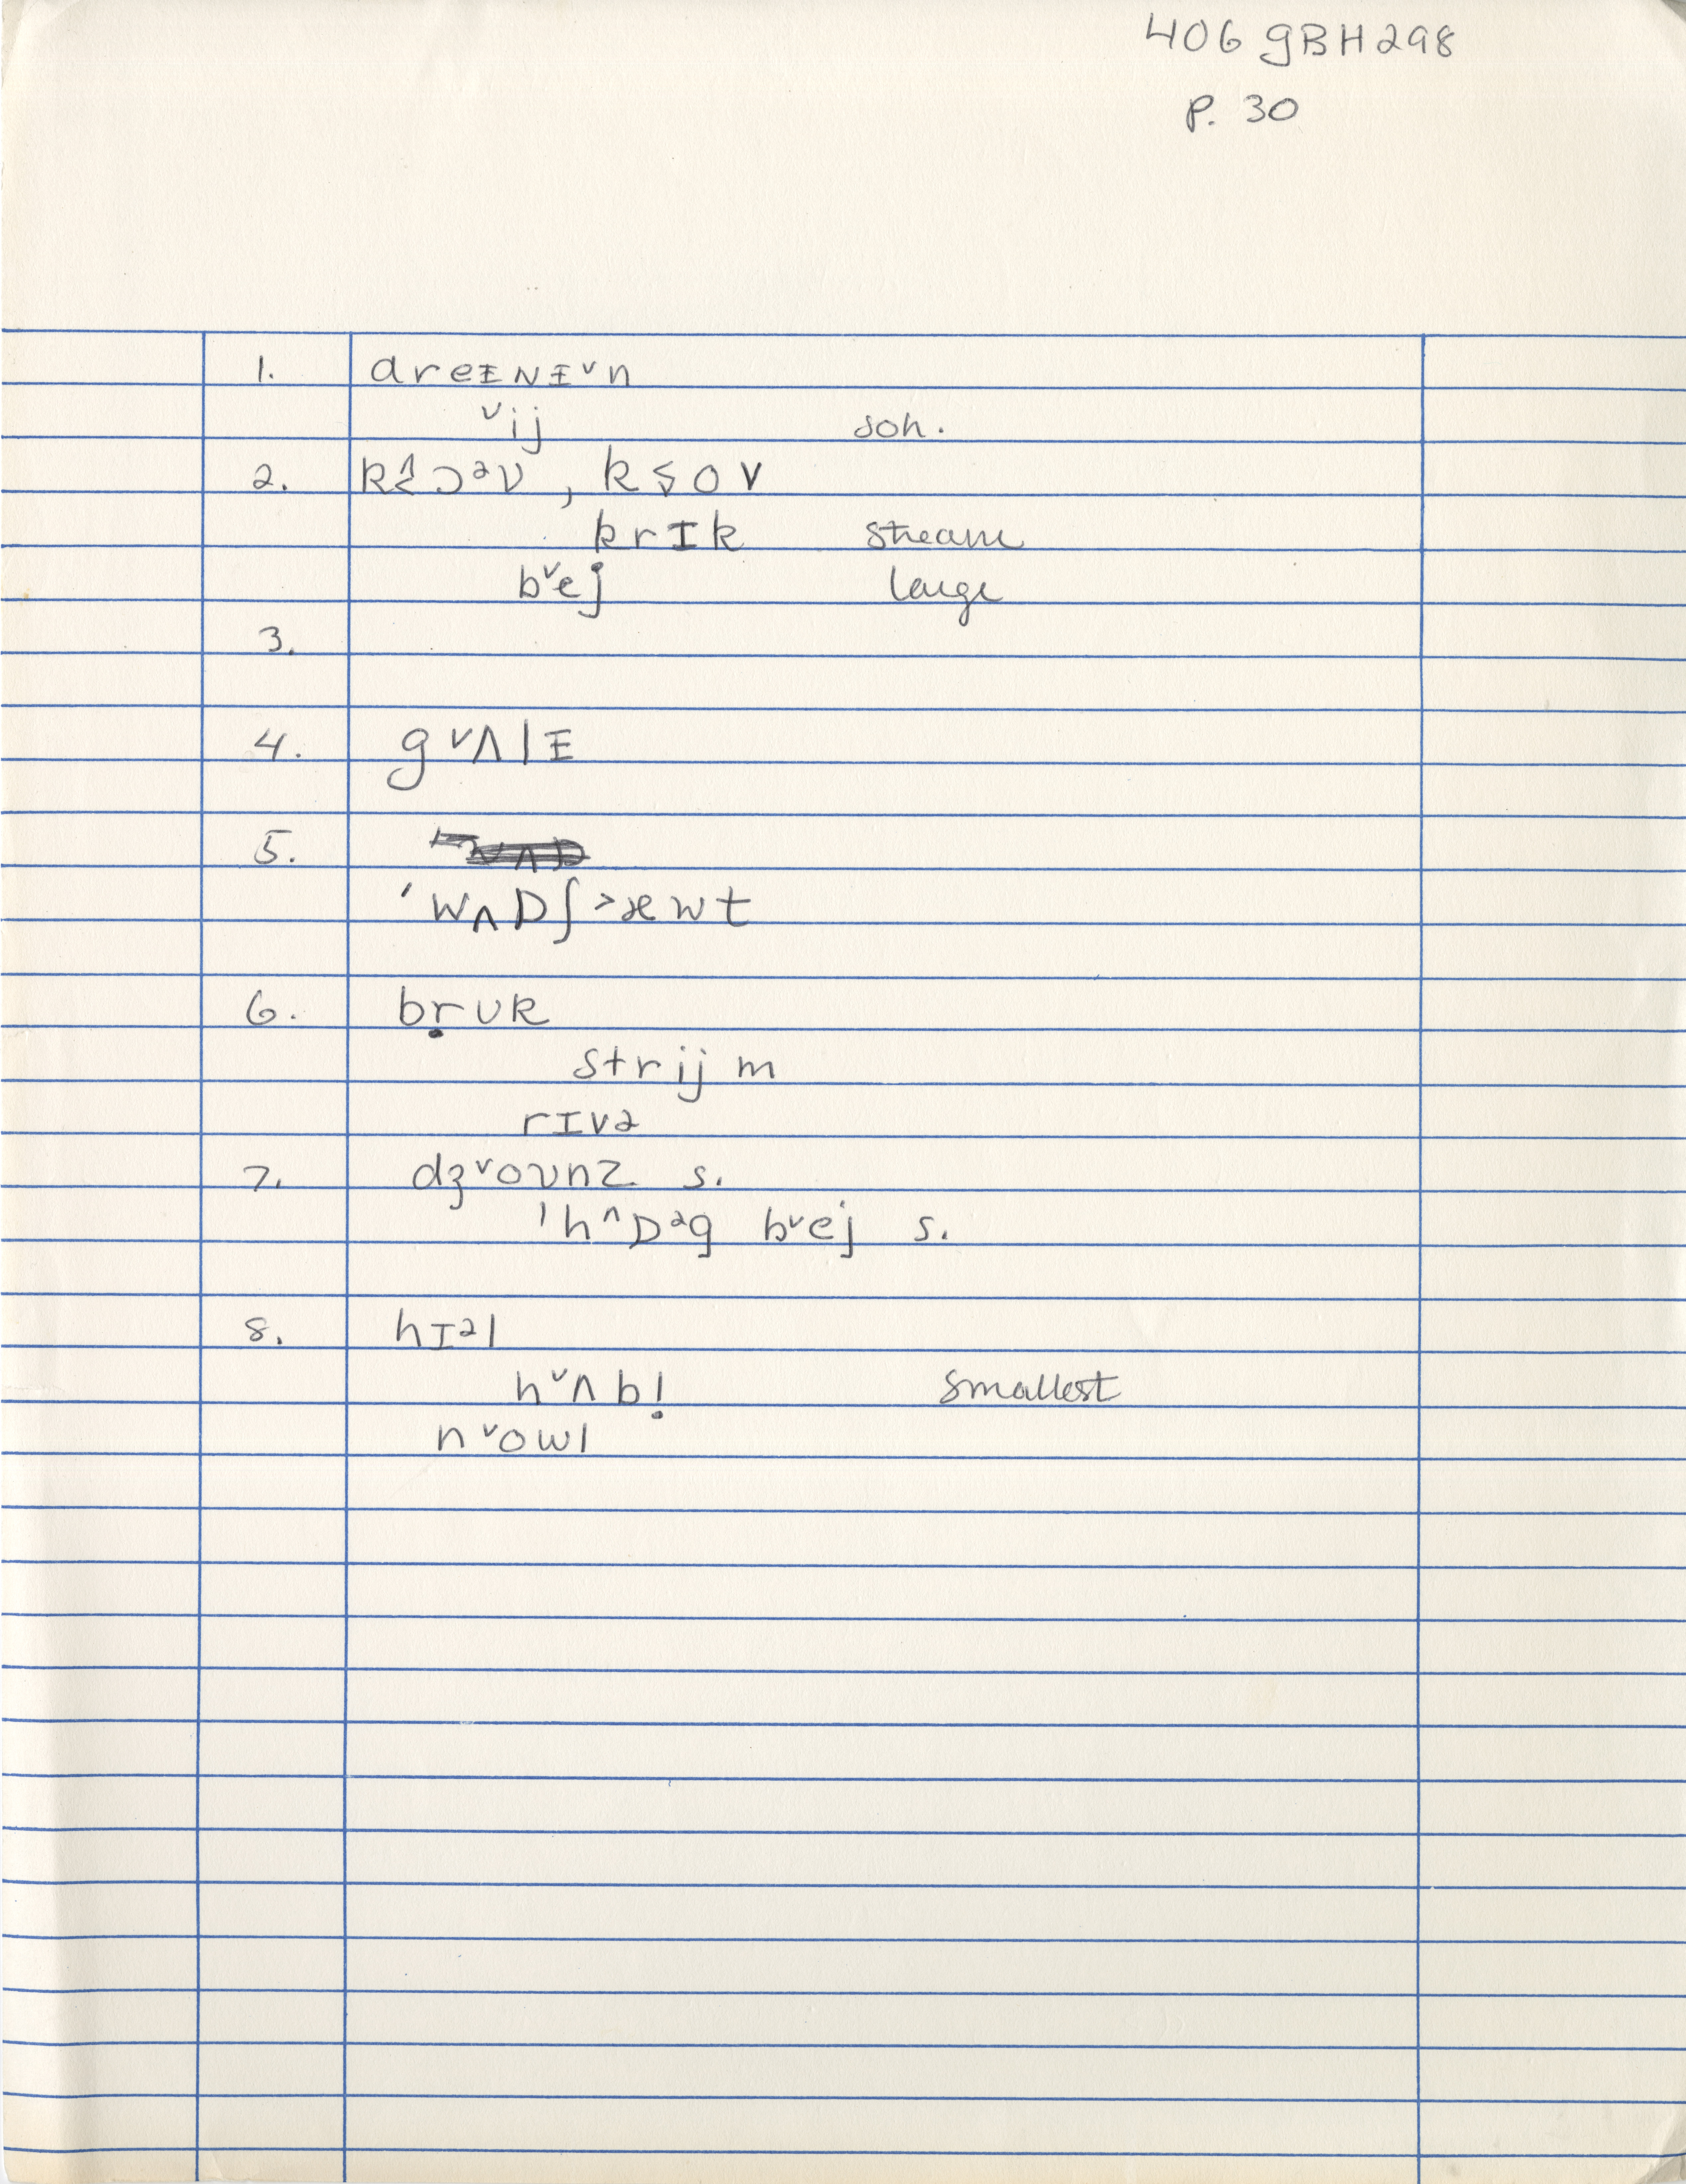 406 gBH298
P. 30
1. dreɪNɪ˅n
˅ij soh.
2. , k s o v
krIk stream
b˅ej large
3.
4. g˅ʌlɪ
5.
ˈwʌDʃ˃æwt
6. bṛʊk
strijm
rIvə
7. dʒ˅oʊnz s.
ˈh^Dəg b˅ej s.
8. hIəl
h˅ʌbḷ smallest
n˅owl